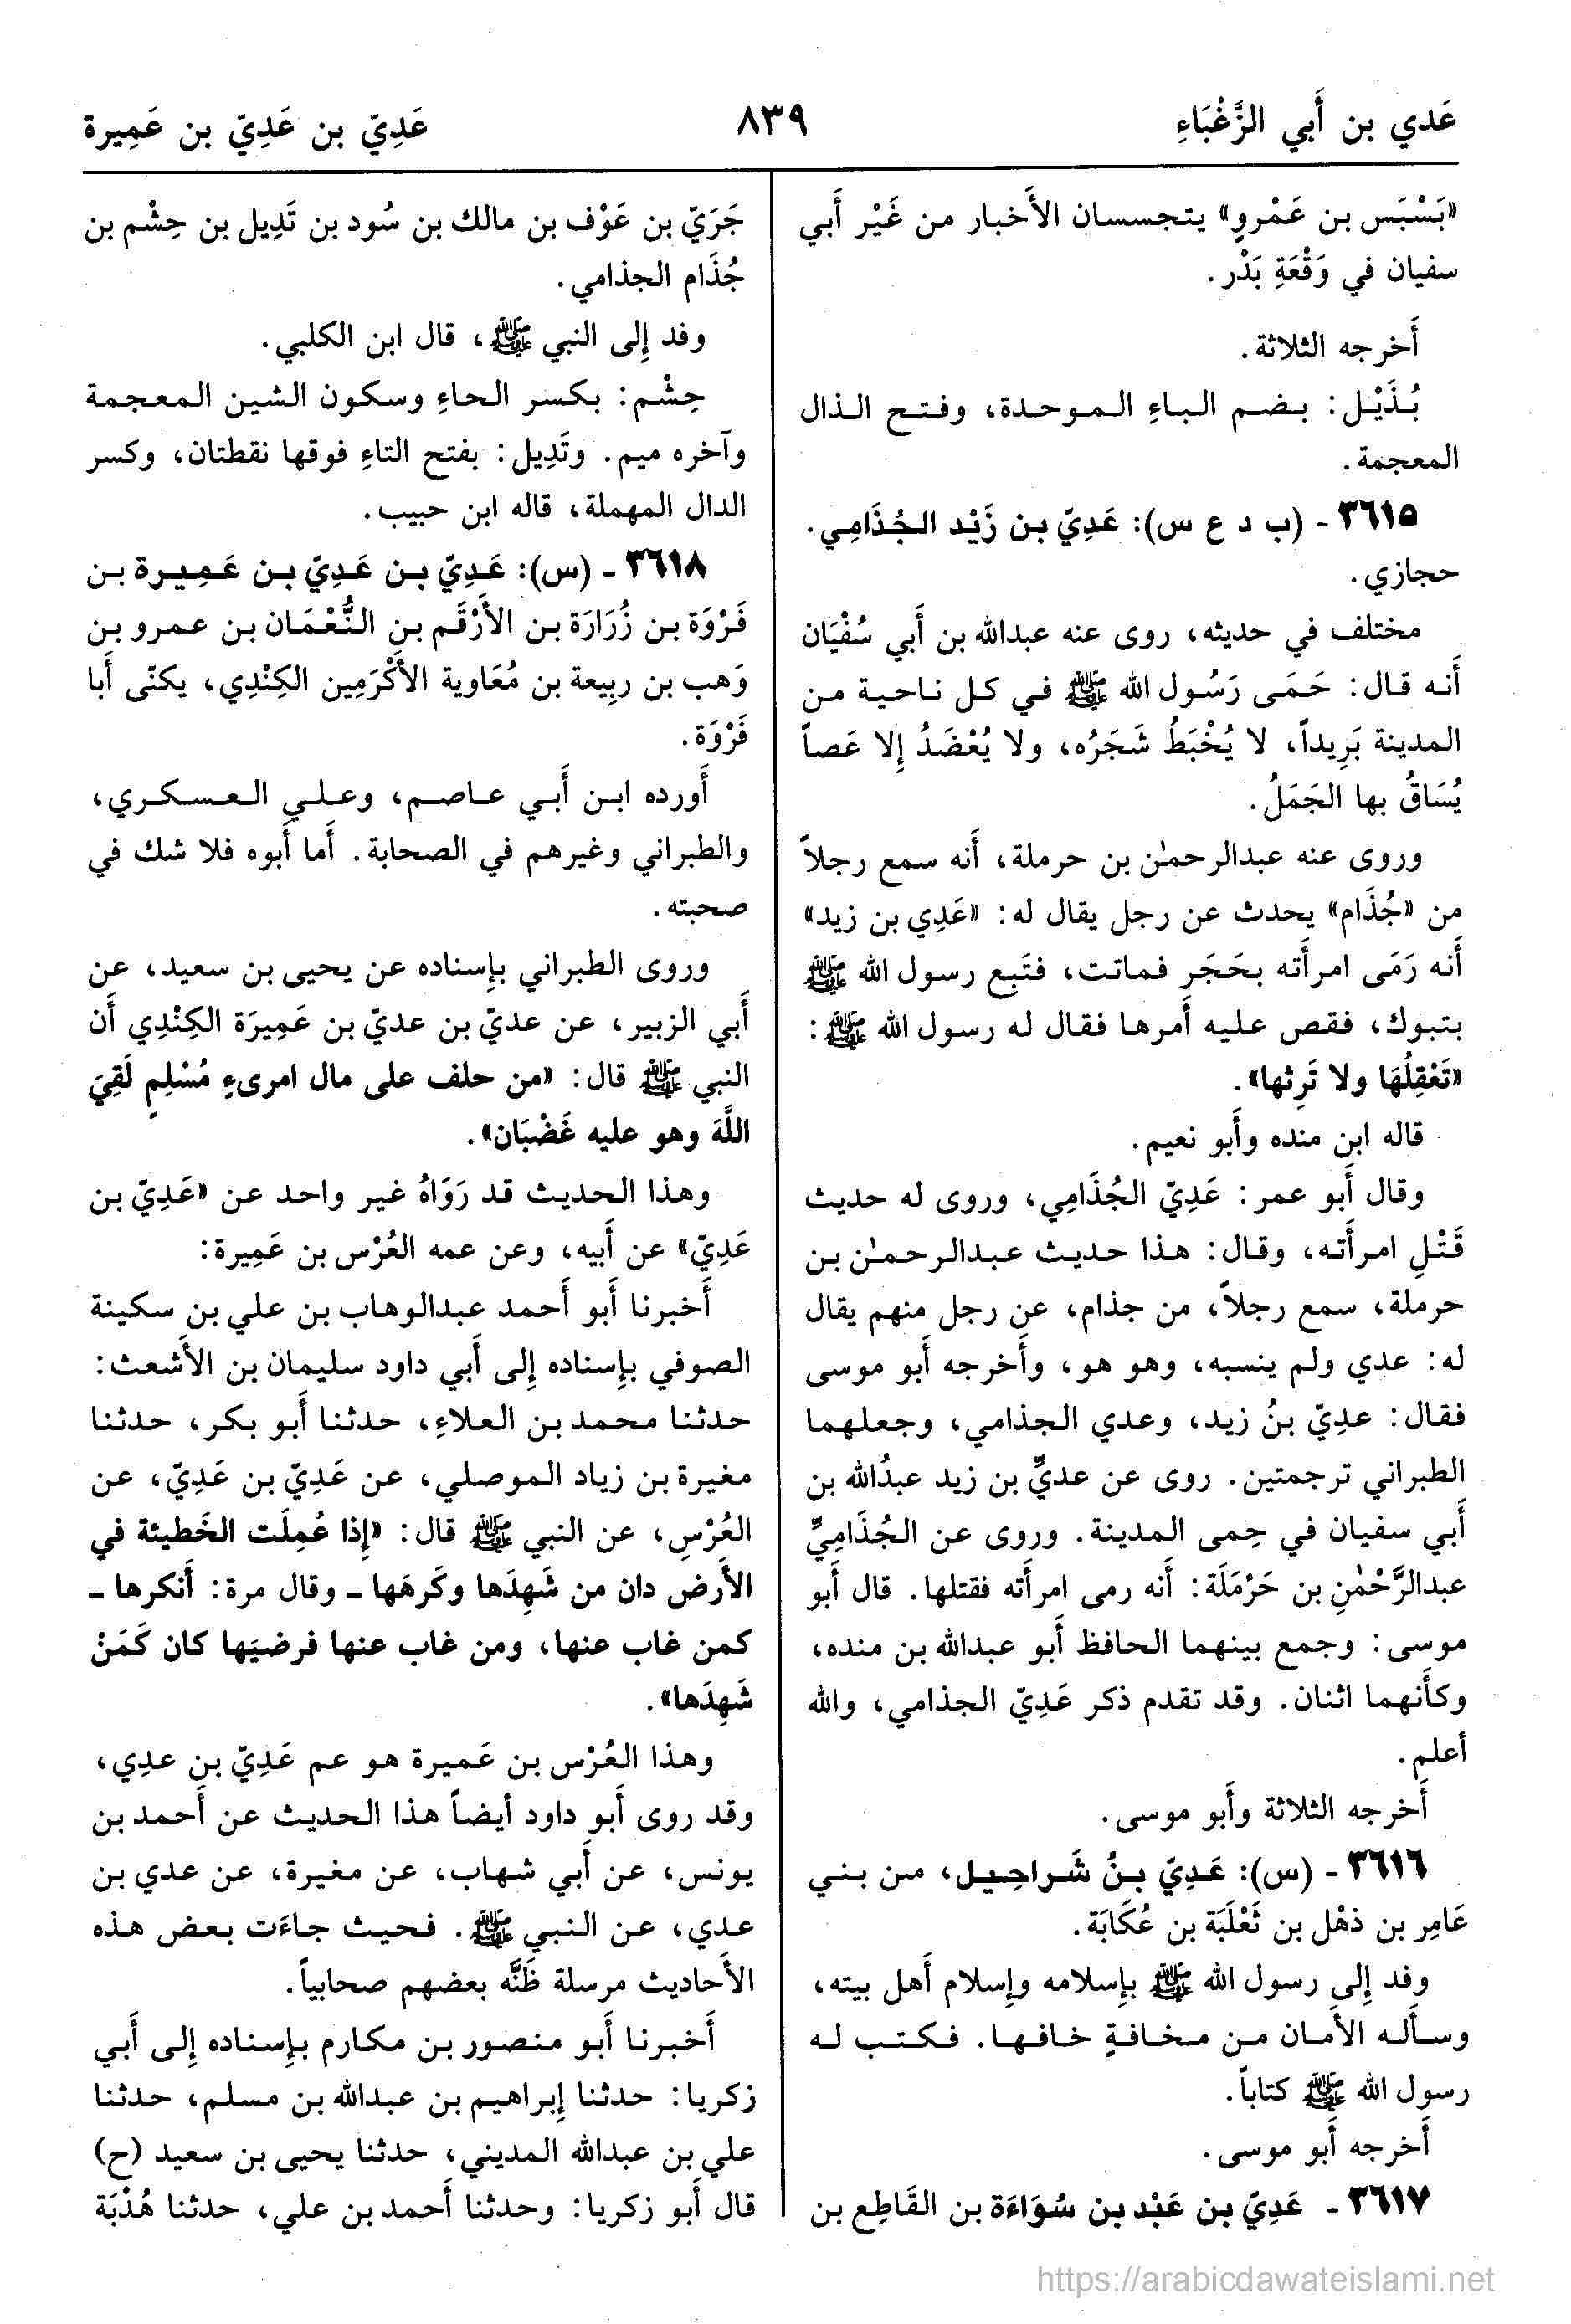 عَدي بن أَبي الزَّغْبَاءِ
٨٣٩
عَدِيّ بن عَدِيّ بن عَمِيرة
«بَسْبَس بن عَمْروٍ» يتجسسان الأَخبار من غَيْر أَبي
سفيان في وَقْعَةِ بَدْر.
أَخرجه الثلاثة.
بُذَيْل: بضم الباءِ الموحدة، وفتح الذال
المعجمة.
٣٦١٥ - (ب د ع س): عَدِيّ بن زَيْد الجُذَامِي.
حجازي.
مختلف في حديثه، روى عنه عبدالله بن أَبي سُفْيَان
أَنه قال: حَمَى رَسُول الله ﷺ في كل ناحية من
المدينة بَرِيداً، لا يُخْبَطُ شَجَرُه، ولا يُعْضَدُ إِلا عَصاً
يُسَاقُ بها الجَمَلُ.
وروى عنه عبدالرحمٰن بن حرملة، أَنه سمع رجلاً
من «جُذَام» يحدث عن رجل يقال له: «عَدِي بن زيد»
أَنه رَمَى امرأَته بحَجَرٍ فماتت، فتَبِع رسول الله ﷺ
بتبوك، فقص عليه أَمرها فقال له رسول الله ﷺ:
«تَعْقِلُهَا ولا تَرِثها».
قاله ابن منده وأَبو نعيم.
وقال أَبو عمر: عَدِيّ الجُذَامِي، وروى له حديث
قَتْلِ امرأَته، وقال: هذا حديث عبدالرحمٰن بن
حرملة، سمع رجلاً، من جذام، عن رجل منهم يقال
له: عدي ولم ينسبه، وهو هو، وأَخرجه أَبو موسى
فقال: عديّ بنُ زيد، وعدي الجذامي، وجعلهما
الطبراني ترجمتين. روى عن عديٍّ بن زيد عبدُالله بن
أَبي سفيان في حِمى المدينة. وروى عن الجُذَامِيِّ
عبدالرَّحْمٰنِ بن حَرْمَلَة: أَنه رمى امرأَته فقتلها. قال أَبو
موسى: وجمع بينهما الحافظ أَبو عبدالله بن منده،
وكأَنهما اثنان. وقد تقدم ذكر عَدِيّ الجذامي، والله
أعلم.
أَخرجه الثلاثة وأَبو موسى.
٣٦١٦ - (س): عَدِيّ بنُ شَراحِيل، من بني
عَامِر بن ذهْل بن ثَعْلَبَة بن عُكَابَة.
وفد إِلى رسول الله ﷺ بإِسلامه وإِسلام أَهل بيته،
وسأَله الأَمان من مخافةٍ خافها. فكتب له
رسول الله ﷺ كتاباً.
أَخرجه أَبو موسى.
٣٦١٧ - عَدِيّ بن عَبْد بن سُوَاءَة بن القَاطِع بن
جَرَيّ بن عَوْف بن مالك بن سُود بن تَدِيل بن حِشْم بن
جُذَام الجذامي.
وفد إِلى النبي ﷺ، قال ابن الكلبي.
حِشْم: بكسر الحاءِ وسكون الشين المعجمة
وآخره ميم. وتَدِيل: بفتح التاءِ فوقها نقطتان، وكسر
الدال المهملة، قاله ابن حبيب.
٣٦١٨ - (س): عَدِيّ بن عَدِيّ بن عَمِيرة بن
فَرْوَة بن زُرَارَة بن الأَرْقَم بن النُّعْمَان بن عمرو بن
وَهب بن ربِيعة بن مُعَاوية الأَكْرَمِين الكِنْدِي، يكنّى أَبا
فَرْوَة.
أَورده ابن أَبي عاصم، وعلي العسكري،
والطبراني وغيرهم في الصحابة. أَما أَبوه فلا شك في
صحبته.
وروى الطبراني بإِسناده عن يحيى بن سعيد، عن
أَبي الزبير، عن عديّ بن عديّ بن عَمِيرَة الكِنْدِي أَن
النبي ﷺ قال: «من حلف على مال امرىءٍ مُسْلِمٍ لَقِيَ
اللَّهَ وهو عليه غَضْبَان».
وهذا الحديث قد رَوَاهُ غير واحد عن «عَدِيّ بن
عَدِيّ» عن أَبيه، وعن عمه العُرْس بن عَمِيرة:
أَخبرنا أَبو أَحمد عبدالوهاب بن علي بن سكينة
الصوفي بإِسناده إِلى أَبي داود سليمان بن الأَشعث:
حدثنا محمد بن العلاءِ، حدثنا أَبو بكر، حدثنا
مغيرة بن زياد الموصلي، عن عَدِيّ بن عَدِيّ، عن
العُرْسِ، عن النبي ﷺ قال: «إِذا عُمِلَت الخَطيئة في
الأَرض دان من شَهِدَها وكَرِهَها ـ وقال مرة: أَنكرها ـ
كمن غاب عنها، ومن غاب عنها فرضيَها كان كَمَنْ
شَهِدَها».
وهذا العُرْس بن عَميرة هو عم عَدِيّ بن عدِي،
وقد روى أَبو داود أيضاً هذا الحديث عن أَحمد بن
يونس، عن أَبي شهاب، عن مغيرة، عن عدي بن
عدي، عن النبي ﷺ. فحيث جاءَت بعض هذه
الأَحاديث مرسلة ظَنَّه بعضهم صحابياً.
أَخبرنا أَبو منصور بن مكارم بإِسناده إِلى أَبي
زكريا: حدثنا إِبراهيم بن عبدالله بن مسلم، حدثنا
علي بن عبدالله المديني، حدثنا يحيى بن سعيد (ح)
قال أَبو زكريا: وحدثنا أَحمد بن علي، حدثنا هُدْبَة
https://arabicdawateislami.net